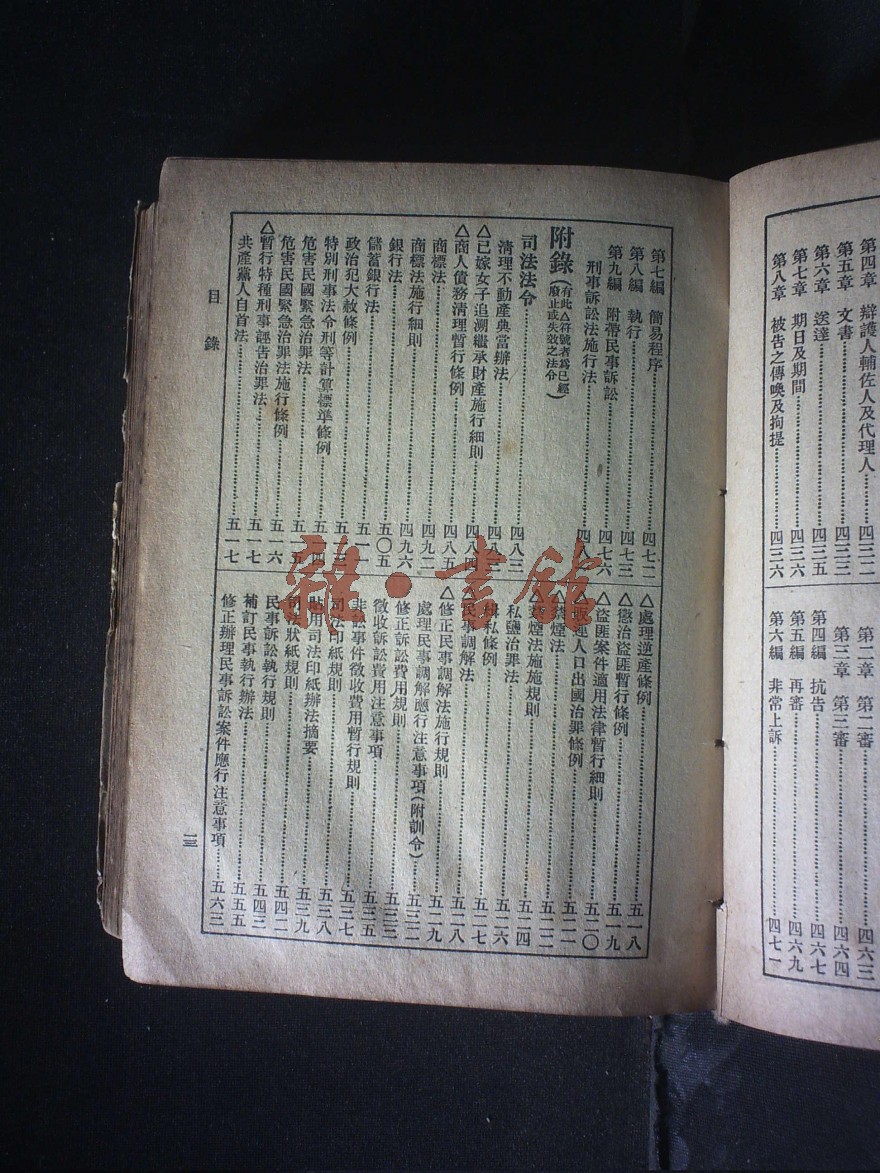 第四章 辯護人輔佐人及代理人……四三二
第五章 文書……四三三
第六章 送達……四三五
第七章 期日及期間……四三六
第八章 被告之傳喚及拘提……四三六
第二章 第二審……四六三
第三章 第三審……四六四
第四編 抗告……四六七
第五編 再審……四六九
第六編 非常上訴……四七一
第七編 簡易程序……四七二
第八編 執行……四七三
第九編 附帶民事訴訟……四七六
刑事訴訟法施行法……四八
附錄(有此△符號者爲已經廢止或失效之法令)
司法法令……四八三
清理不動產典當辦法……四八三
△已嫁女子追溯繼承財產施行細則……四八四
△商人債務清理暫行條例……四八五
商標法……四九二
商標法施行細則……四九六
銀行法……五〇五
儲蓄銀行法……五一一
政治犯大赦條例……五一三
特別刑事法令刑等計算標準條例……五一四
危害民國緊急治罪法……五一五
危害民國緊急治罪法施行條例……五一六
△暫行特種刑事誣告治罪法……五一七
共產黨人自首法……五一七
△處理逆產條例……五一八
△懲治盜匪暫行條例……五一九
△盜匪案件適用法律暫行細則……五二〇
△販運人口出國治罪條例……五二一
△禁煙法……五二二
△禁煙法施行規則……五二四
私鹽治罪法……五二六
緝私條例……五二七
△民事調解法……五二八
△修正民事調解法施行規則……五二九
處理民事調解應行注意事項(附訓令)……五三二
修正訴訟費用規則……五三三
徵收訴訟費用注意事項……五三五
非訟事件徵收費用暫行規則……五三七
司法印紙規則……五三八
貼用司法印紙辦法摘要……五三九
司法狀紙規則……五四二
民事訴訟執行規則……五四三
補訂民事執行辦法……五五五
修正辦理民事訴訟案件應行注意事項……五六三
目錄
一三
雜·書館